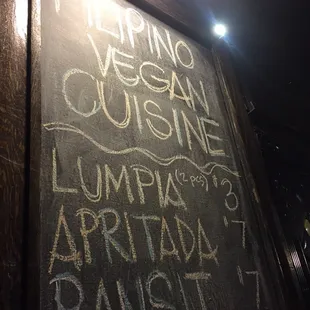 FILIPINO
VEGAN
CUISINE
LUMPIA (2 pcs) $3
APRITADA $7
PANSIT $7